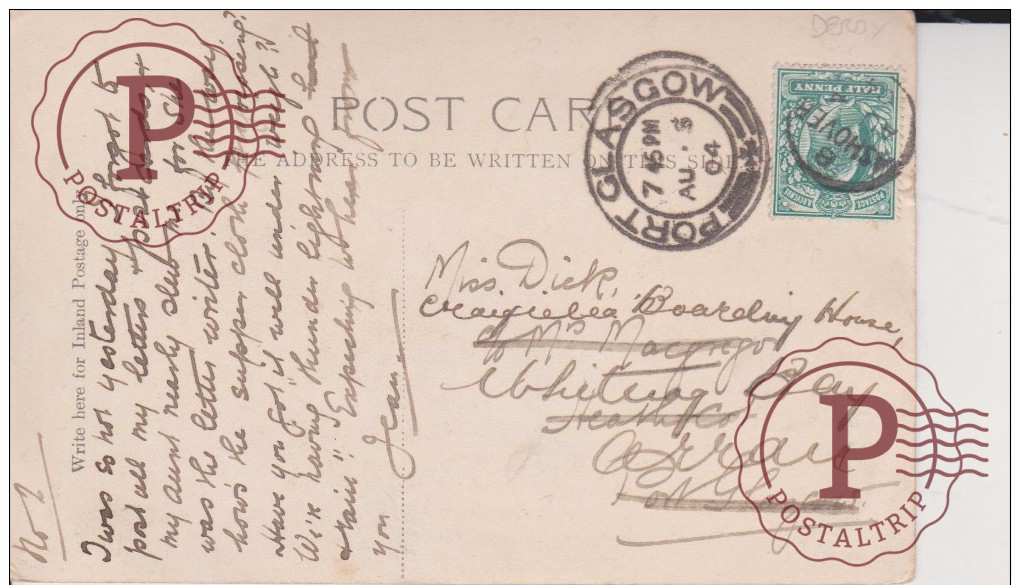 DERBY
POST CAR
THE ADDRESS TO BE WRITTEN ON THIS SIDE
Write here for Inland Postage only
No 2
I was so hot yesterday forgot to
post all my letters + post cards
my aunt nearly slew me for she
was the letter writer.
how's the supper cloth
Have you got it well under weigh?
We're having thunder lightning
+ rain! Expecting to hear from
you
Jean
PORT GLASGOW
7 45 PM
AU 3
04
ASHOVER
HALF PENNY
POSTAGE
REVENUE
Miss Dick,
Craigielea Boarding House,
c/o Mrs Macgregor
Whiting Bay
Arran
Port Glasgow
P
POSTALTRIP
P
POSTALTRIP